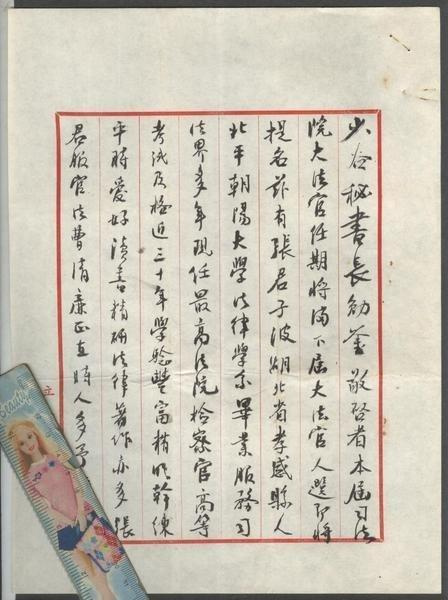 少谷秘書長勛鑒敬啓者本屆司法
院大法官任期將滿下屆大法官人選即將
提名茲有張君子波湖北省孝感縣人
北平朝陽大學法律學系畢業服務司
法界多年現任最高法院檢察官高等
考試及格近三十年學驗豐富精明幹練
平時愛好讀書精研法律著作亦多張
君服官法曹清廉正直時人多予
立
Beauty